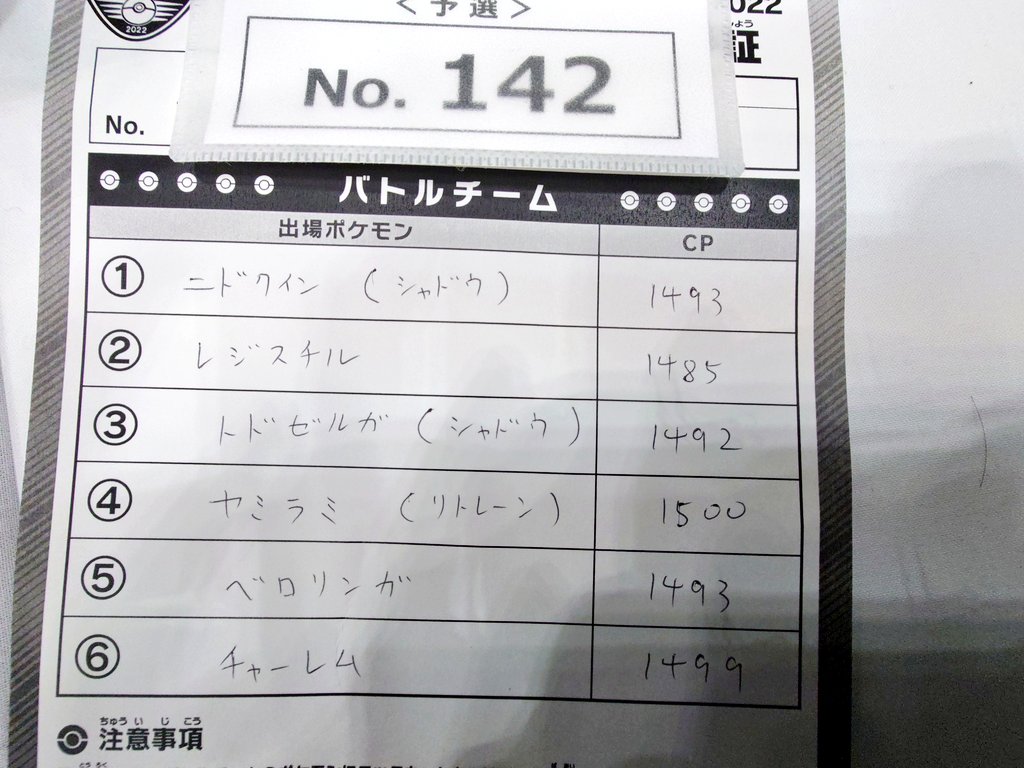 2022
<予選>
No. 142
2022
しょう
証
No.
バトルチーム
出場ポケモン CP
① ニドクイン (シャドウ) 1493
② レジスチル 1485
③ トドゼルガ (シャドウ) 1492
④ ヤミラミ (リトレーン) 1500
⑤ ベロリンガ 1493
⑥ チャーレム 1499
ちゅういじこう
注意事項